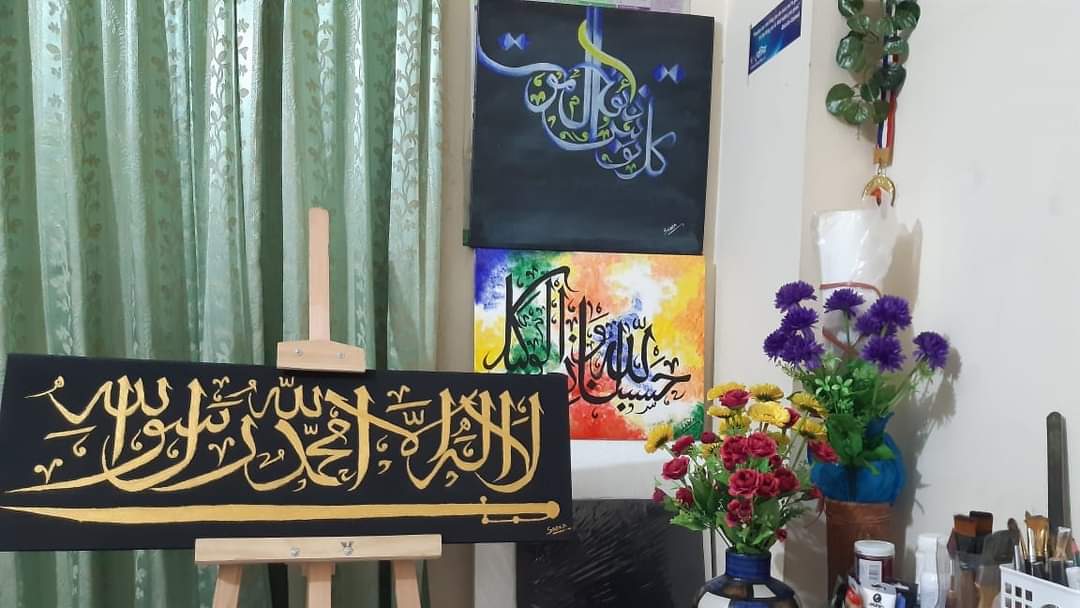 كل نفس ذائقة الموت
حسبنا الله ونعم الوكيل
لا إله إلا الله محمد رسول الله